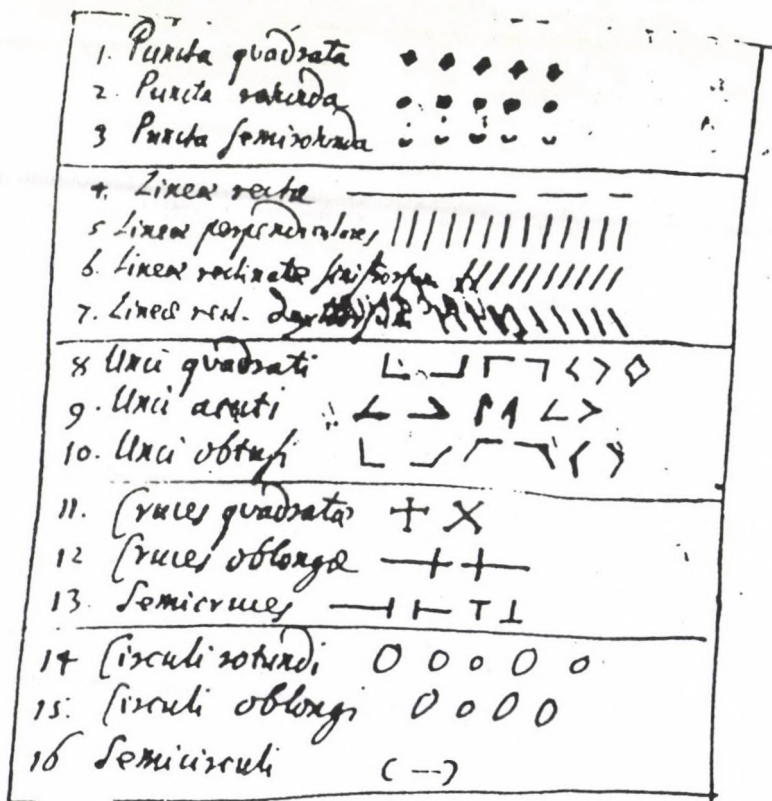 1. Puncta quadrata
2. Puncta rotunda
3 Puncta semirotunda
4. Lineæ rectæ
5 Lineæ perpendiculares
6. Lineæ reclinatæ sinistrorsum
7. Lineæ recl. dextrorsum
8 Unci quadrati
9. Unci acuti
10. Unci obtusi
11. Cruces quadratæ
12 Cruces oblongæ
13. Semicruces
14 Circuli rotundi
15. Circuli oblongi
16 Semicirculi